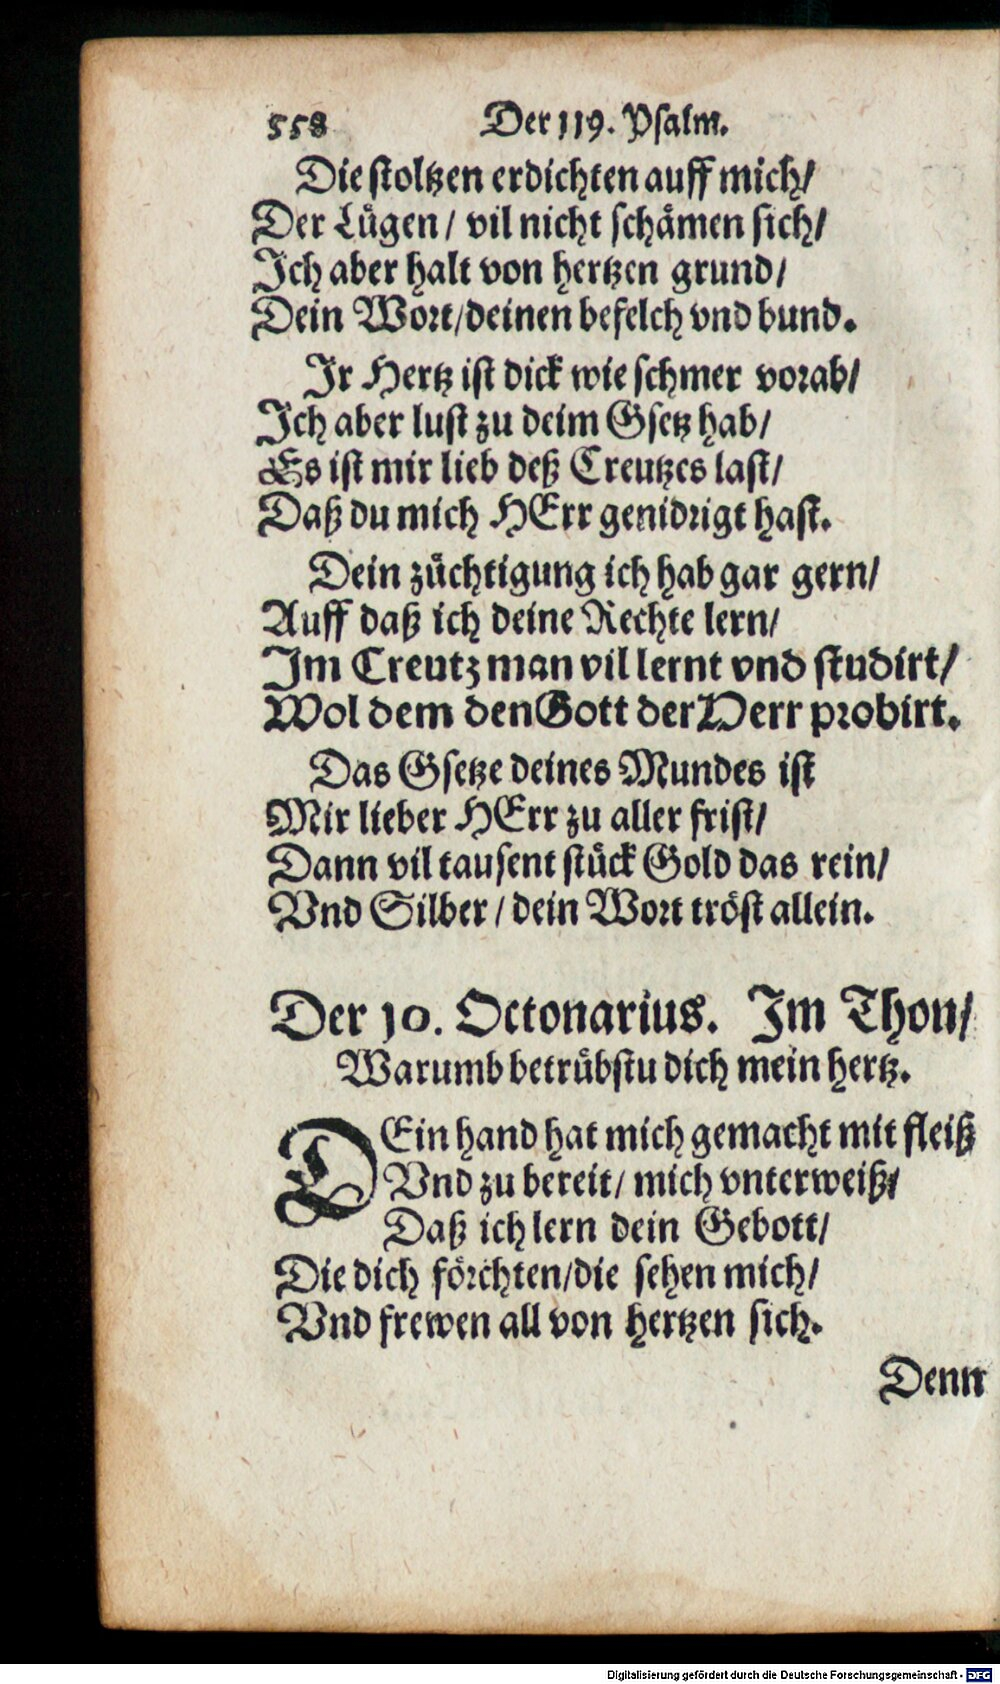 558 Der 119. Psalm.
Die stoltzen erdichten auff mich/
Der Lügen/ vil nicht schämen sich/
Ich aber halt von hertzen grund/
Dein Wort/deinen befelch vnd bund.
Ir Hertz ist dick wie schmer vorab/
Ich aber lust zu deim Gsetz hab/
Es ist mir lieb deß Creutzes last/
Daß du mich HErr genidrigt hast.
Dein züchtigung ich hab gar gern/
Auff daß ich deine Rechte lern/
Im Creutz man vil lernt vnd studirt/
Wol dem den Gott der Herr probirt.
Das Gsetze deines Mundes ist
Mir lieber HErr zu aller frist/
Dann vil tausent stück Gold das rein/
Vnd Silber/ dein Wort tröst allein.
Der 10. Octonarius. Im Thon/
Warumb betrübstu dich mein hertz.
DEin hand hat mich gemacht mit fleiß
Vnd zu bereit/ mich vnterweiß/
Daß ich lern dein Gebott/
Die dich förchten/die sehen mich/
Vnd frewen all von hertzen sich.
Denn
Digitalisierung gefördert durch die Deutsche Forschungsgemeinschaft - DFG